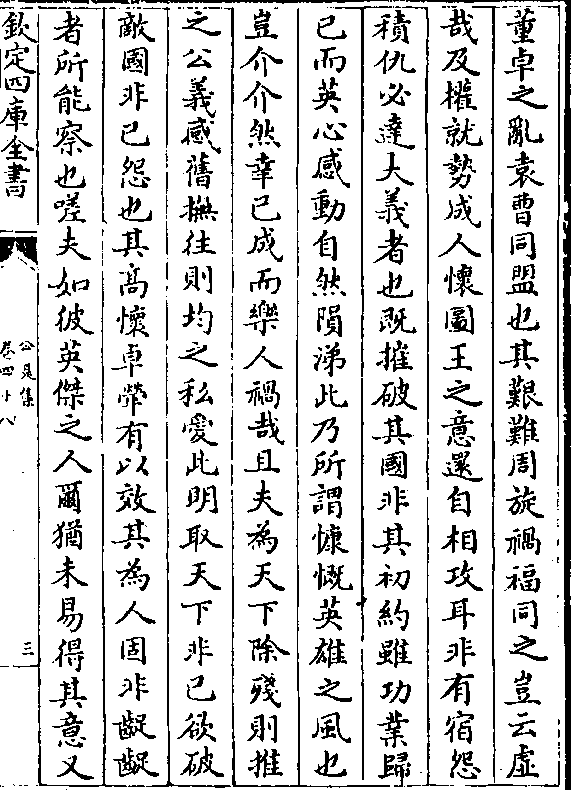 董卓之亂袁曹同盟也其艱難周旋禍福同之豈云虛
哉及權就勢成人懷圖王之意還自相攻耳非有宿怨
積仇必達大義者也既摧破其國非其初約雖功業歸
已而英心感動自然隕涕此乃所謂慷慨英雄之風也
豈介介然幸已成而樂人禍哉且夫為天下除殘則推
之公義感舊撫往則均之私愛此明取天下非已欲破
敵國非已怨也其高懷卓犖有以效其為人固非齪齪
者所能察也嗟夫如彼英傑之人爾猶未易得其意又
欽定四庫全書
公是集
卷四十八
三